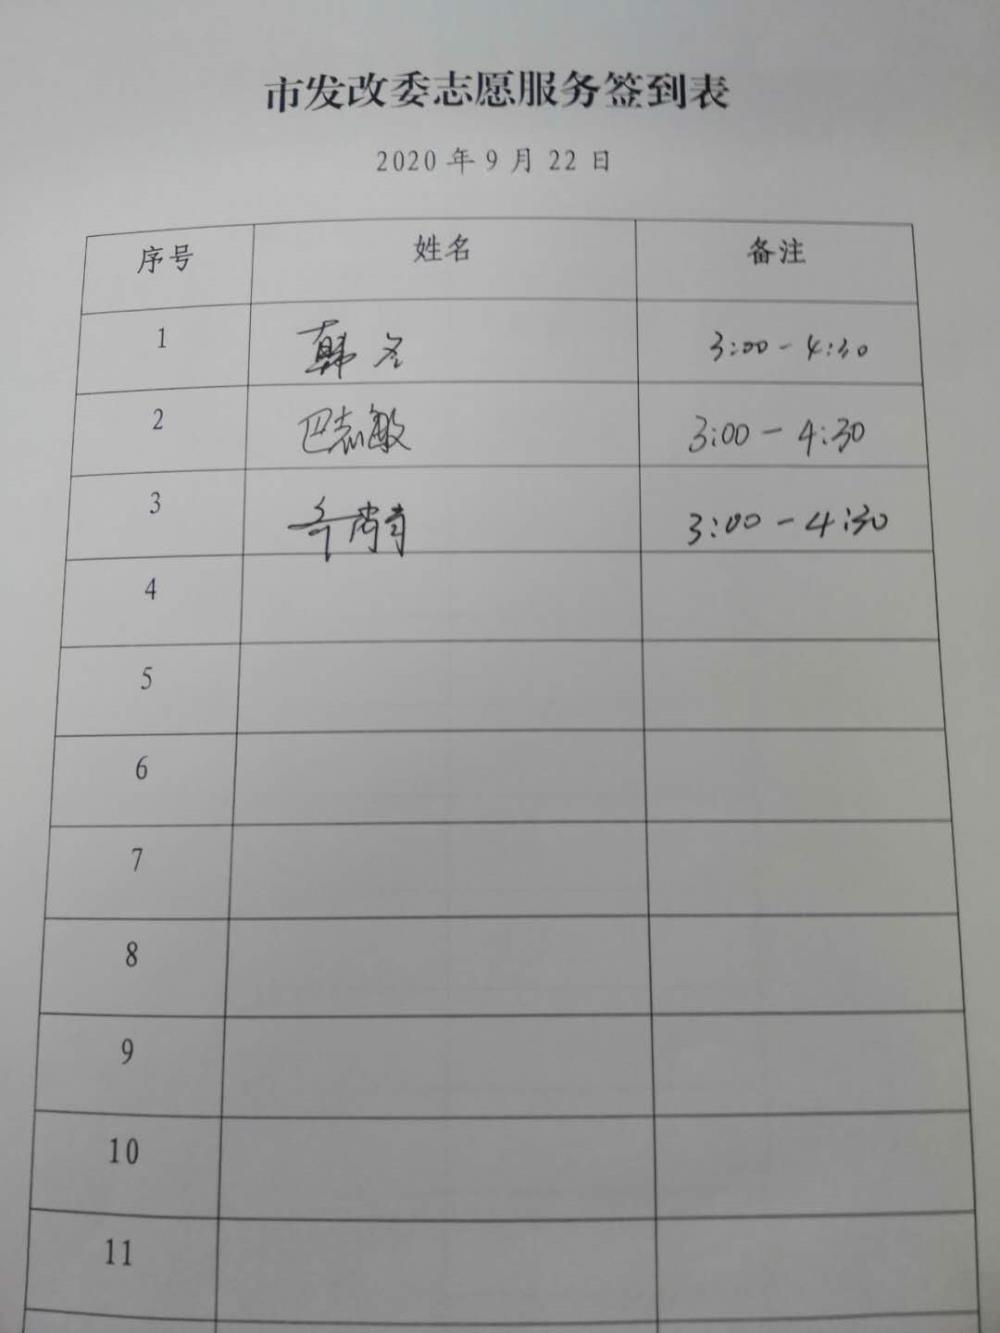 市发改委志愿服务签到表
2020 年 9 月 22 日
序号 姓名 备注
1 韩冬 3:00-4:30
2 巴志敏 3:00-4:30
3 3:00-4:30
4
5
6
7
8
9
10
11